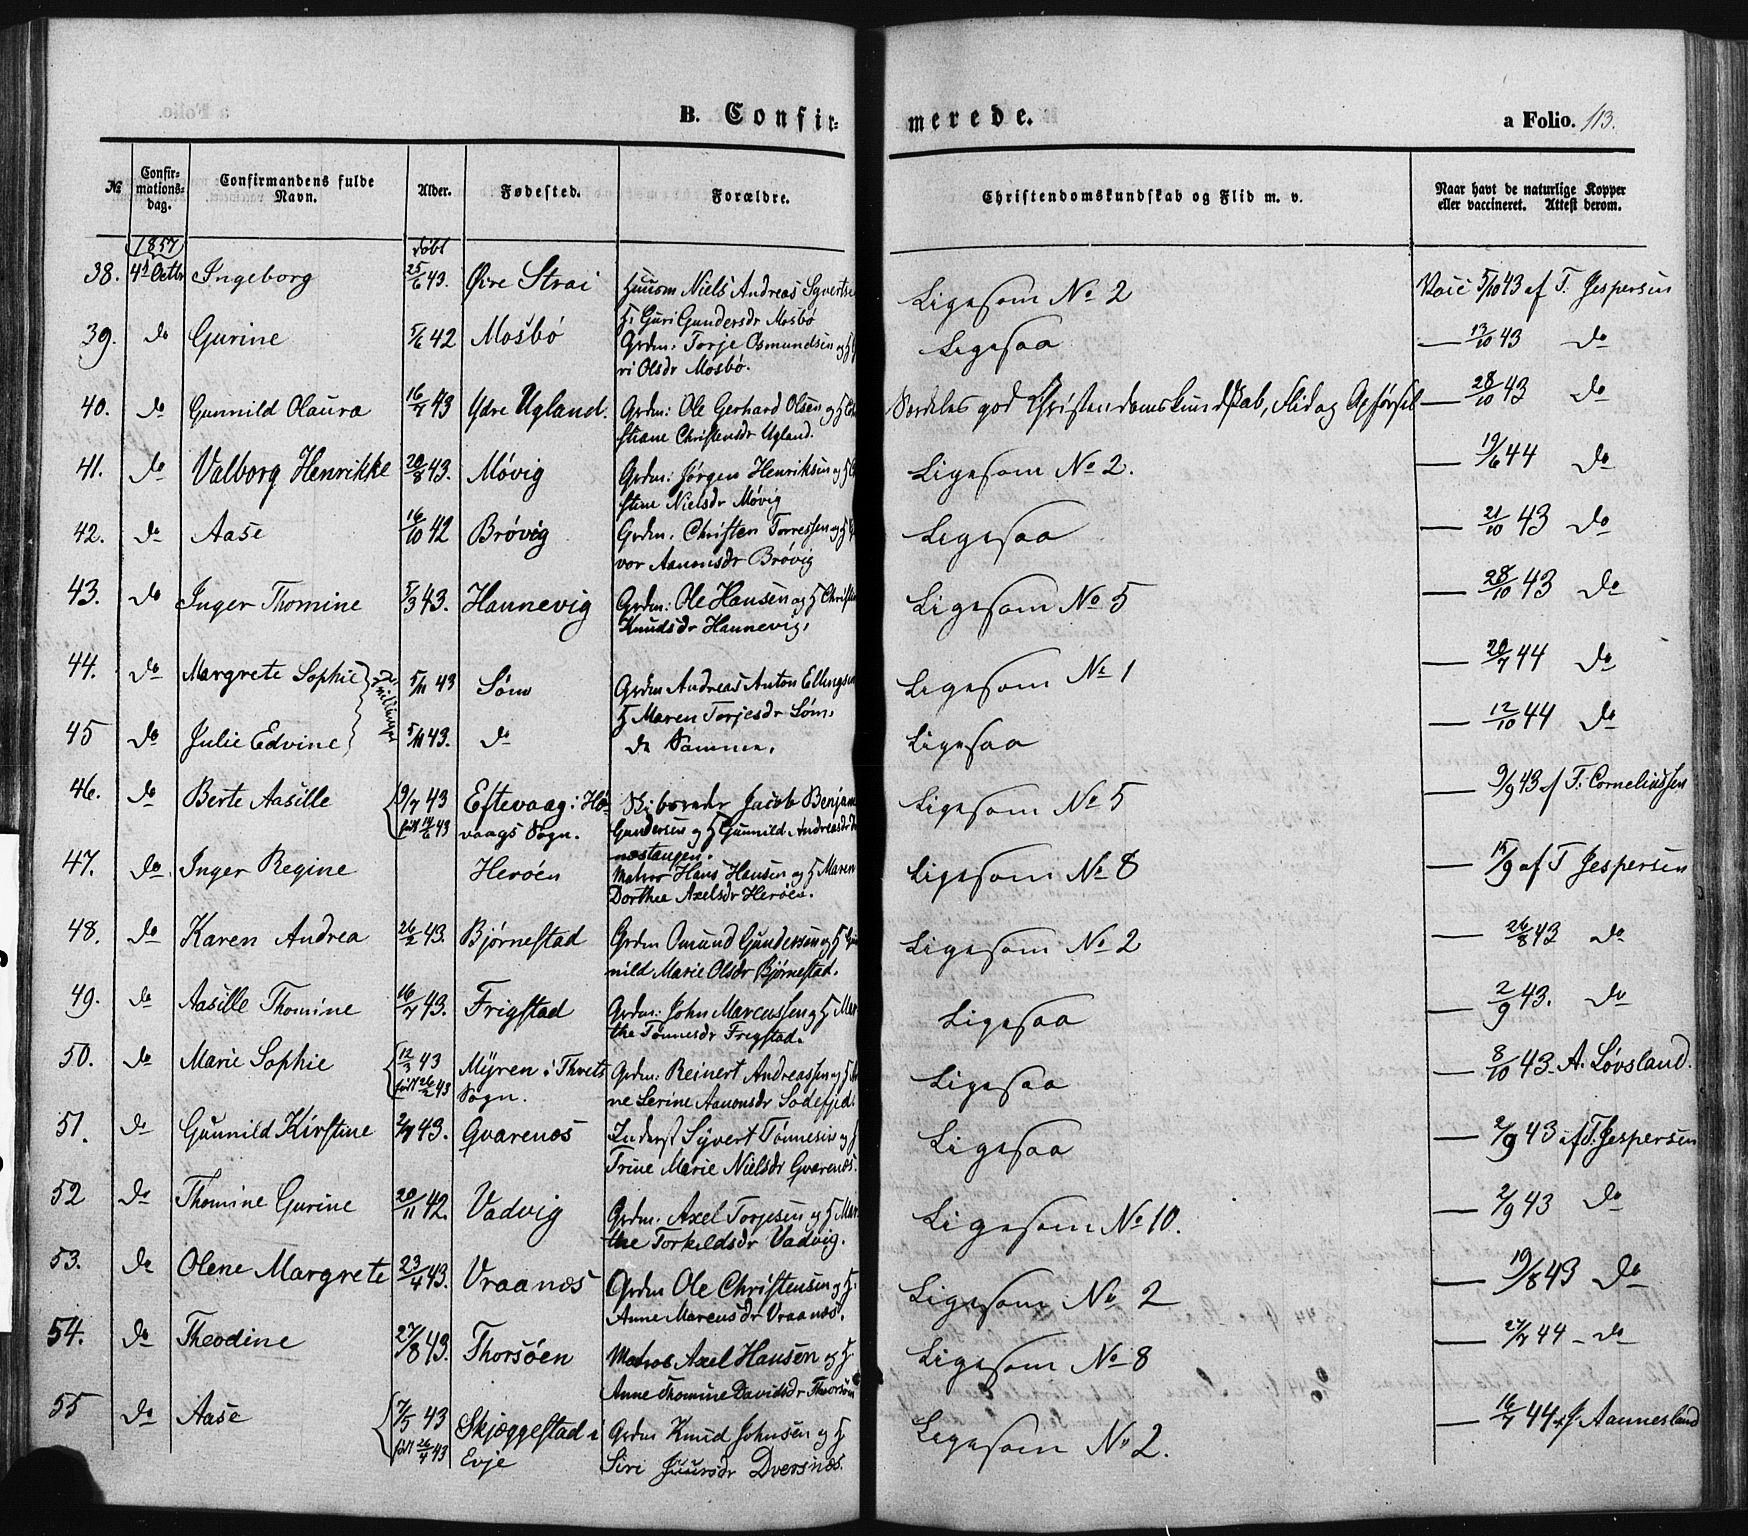 B. Confir-
merede.
a Folio. 113.
№
Confir-
mations-
dag.
Confirmandens fulde
Navn.
Alder.
Fødested.
Forældre.
Christendomskundskab og Flid m. v.
Naar havt de naturlige Kopper
eller vaccineret. Attest derom.
1857
døbt
38. 4d Octbr Ingeborg 25/6 43. Øvre Strai Huusm Niels Andreas Syvertse Ligesom No 2 Vacc 5/10 43 af T. Jespersen
H. Guri Gundersdr Mosbø
39. do Gurine 5/6 42 Mosbø Grdm: Torje Osmundsen og H Ligesaa — 13/10 43 do
ri Olsdr Mosbø.
40. do Gunnild Olaura 16/7 43 Ydre Ugland. Grdm: Ole Gerhard Olsen og H Særdeles god Christendomskundskab, Flid og Opførsel — 28/10 43 do
stiane Christensdr Ugland.
41. do Valborg Henrikke 20/8 43. Møvig Grdm: Jørgen Henriksen og H Ligesom No 2. — 19/6 44 do
stine Nielsdr Møvig
42. do Aase 16/10 42 Brøvig Grdm. Christen Torressen og H Ligesaa — 21/10 43 do
vor Aanonsdr Brøvig
43. do Inger Thomine 5/3 43. Hannevig Grdm: Ole Hansen og H Christi Ligesom No 5 — 28/10 43 do
Knudsdr Hannevig,
44. do Margrete Sophie Tvillinger 5/11 43 Søm Grdm Andreas Anton Ellingsen Ligesom No 1 — 20/7 44 do
H Maren Torjesdr Søm,
45 do Julie Edvine 5/11 43. do de Samme, Ligesaa — 12/10 44 do
46. do Berte Aasille 9/7 43 Eftevaag i Hø- Skibsreder Jacob Benjam Ligesom No 5 — 9/9 43 af T. Corneliussen
født 14/6 43 vaags Sogn. Gundersen og H Gunnild Andreasdr
næstangen.
47. do Inger Regine Herøen Matros Hans Hansen og H Maren Ligesom No 8 — 15/9 af T Jespersen
Dorthea Axelsdr Herøen.
48. do Karen Andrea 26/2 43. Bjørnestad Grdm Omund Gundersen og H Gun Ligesom No 2 — 26/8 43 do
nild Marie Olsdr Bjørnestad.
49. do Aasille Thomine 16/7 43. Frigstad Grdm: John Marcussen og H Mar Ligesaa — 2/9 43. do
the Tønnesdr Frigstad.
50. do Marie Sophie 12/3 43 Myren i Thveits Grdm: Reinert Andreassen og H Ligesaa — 8/10 43. A. Løvsland.
født 26/2 43 Sogn. ne Serine Aanonsdr Sødefjed.
51. do Gunnild Kirstine 2/7 43. Qvarenæs Inderst Syvert Tønnesen og H Ligesaa — 2/9 43 af T. Jespersen
Trine Marie Nielsdr Qvarenæs.
52 do Thomine Gurine 20/11 42. Vadvig Grdm. Axel Torjesen og H Mar Ligesom No 10. — 2/9 43 do
the Torkildsdr Vadvig.
53. do Olene Margrete 23/4 43. Vraanæs Grdm Ole Christensen og H. Ligesom No 2 — 19/8 43 do
Anne Marcusdr Vraanæs.
54. do Theodine 27/8 43. Thorsøen Matros Axel Hansen og H Ligesom No 8 — 27/7 44 - do
Anne Thomine Davidsdr Thorsøen
55 do Aase 7/5 43 Skjæggestad i Grdm Knud Johnsen og H Ligesom No 2. — 16/7 44 af J. Aannesland
født 26/4 43 Evje Siri Dversnæs.